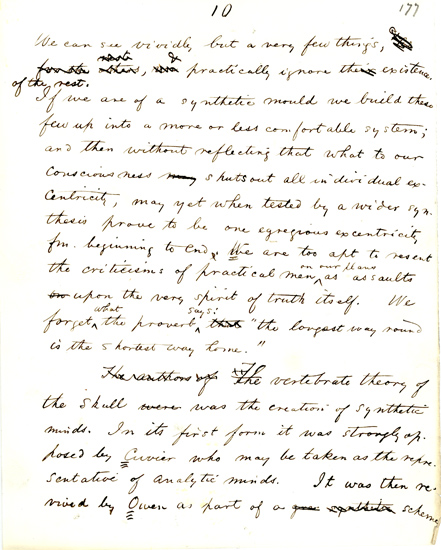 10
177
We can see vividly but a very few things,
rest &
for the others, practically ignore their existence
of the rest.
If we are of a synthetic mould we build these
few up into a more or less comfortable system;
and then without reflecting that what to our
consciousness may shutsout all individual ex-
centricity, may yet when tested by a wider syn-
thesis prove to be one egregious excentricity
fm. beginning to end. We are too apt to resent
on our plans
the criticisms of practical men, as assaults
on upon the very spirit of truth itself. We
what says:
forget the proverb that "the longest way round
is the shortest way home."
The authors of The vertebrate theory of
the skull were was the creation of synthetic
minds. In its first form it was strongly op-
posed by Cuvier who may be taken as the repre-
sentative of analytic minds. It was then re-
vived by Owen as part of a synthetic scheme